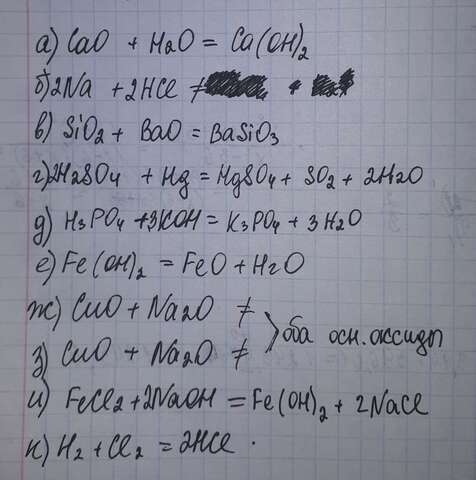 а) CaO + H2O = Ca(OH)2
б) 2Na + 2HCl ≠
в) SiO2 + BaO = BaSiO3
г) 2H2SO4 + Hg = HgSO4 + SO2 + 2H2O
д) H3PO4 + 3KOH = K3PO4 + 3H2O
е) Fe(OH)2 = FeO + H2O
ж) CuO + Na2O ≠
оба осн. оксиды
з) CuO + Na2O ≠
и) FeCl2 + 2NaOH = Fe(OH)2 + 2NaCl
к) H2 + Cl2 = 2HCl .